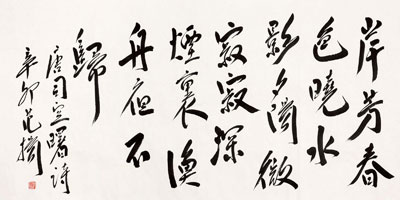 岸芳春
色曉水
影夕陽微
寂寂深
煙裏漁
舟夜不
歸
唐司空曙詩
辛卯范